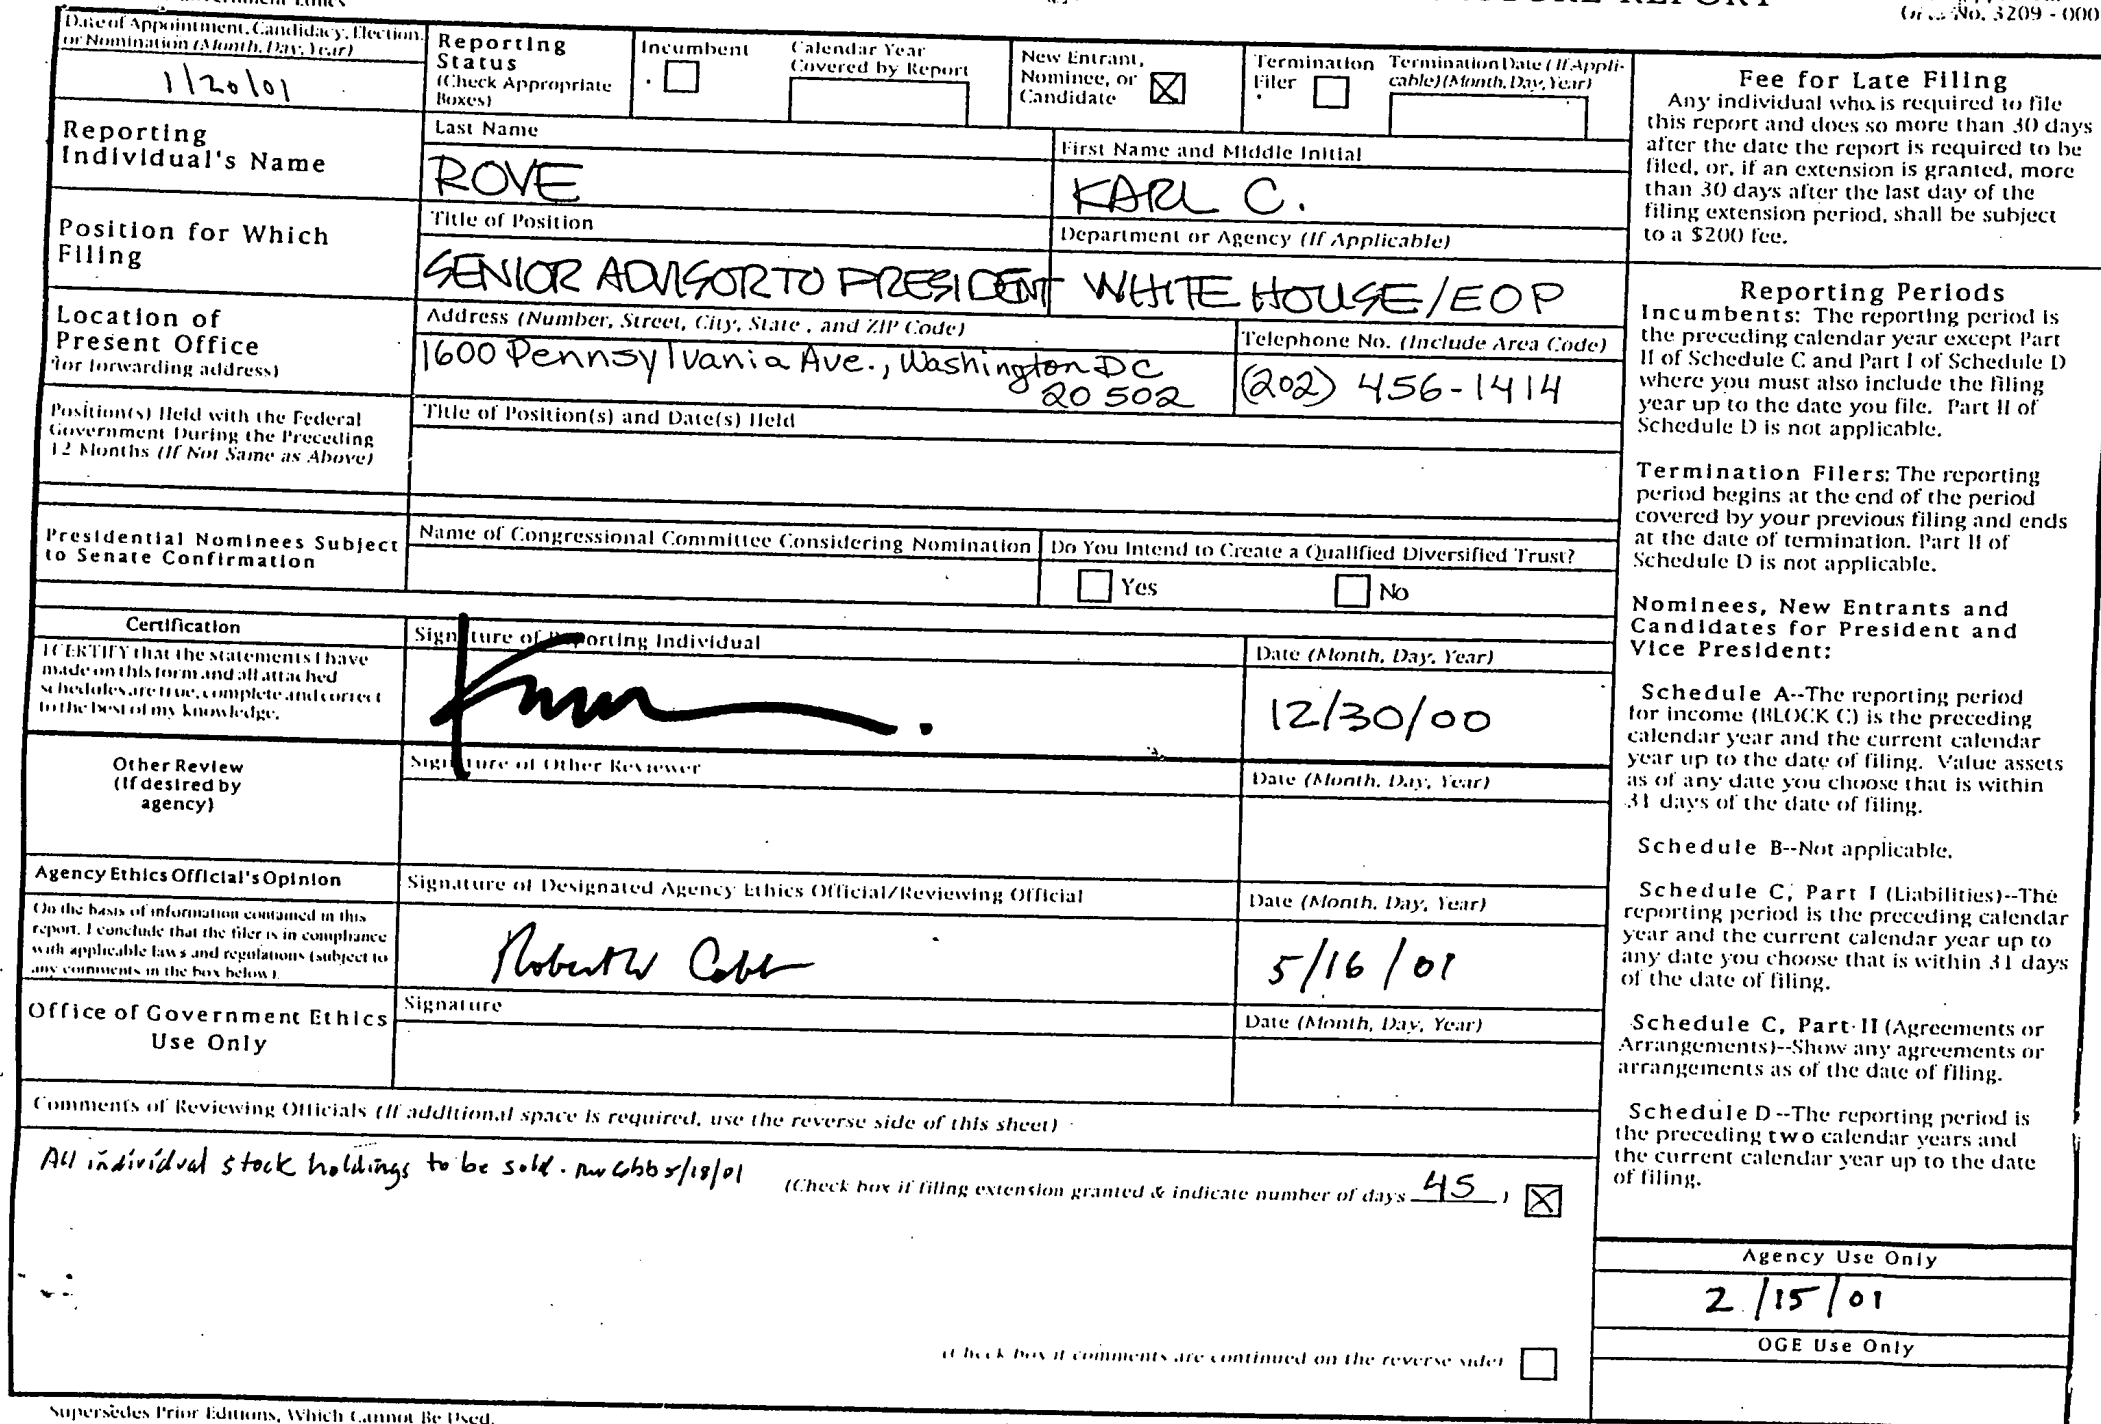 Government Ethics
REPORT
No. 3209 - 000
Date of Appointment, Candidacy, Election,
or Nomination (Month, Day, Year)
1/20/01
Reporting
Status
(Check Appropriate
Boxes)
Incumbent
Calendar Year
Covered by Report
New Entrant,
Nominee, or
Candidate
Termination
Filer
Termination Date (If Appli-
cable) (Month, Day, Year)
Reporting
Individual's Name
Last Name
ROVE
First Name and Middle Initial
KARL C.
Position for Which
Filing
Title of Position
SENIOR ADVISOR TO PRESIDENT
Department or Agency (If Applicable)
WHITE HOUSE/EOP
Location of
Present Office
(or forwarding address)
Address (Number, Street, City, State , and ZIP Code)
1600 Pennsylvania Ave., Washington DC
20502
Telephone No. (Include Area Code)
(202) 456-1414
Position(s) Held with the Federal
Government During the Preceding
12 Months (If Not Same as Above)
Title of Position(s) and Date(s) Held
Presidential Nominees Subject
to Senate Confirmation
Name of Congressional Committee Considering Nomination
Do You Intend to Create a Qualified Diversified Trust?
Yes
No
Certification
I CERTIFY that the statements I have
made on this form and all attached
schedules are true, complete and correct
to the best of my knowledge.
Signature of Reporting Individual
Date (Month, Day, Year)
12/30/00
Other Review
(If desired by
agency)
Signature of Other Reviewer
Date (Month, Day, Year)
Agency Ethics Official's Opinion
On the basis of information contained in this
report, I conclude that the filer is in compliance
with applicable laws and regulations (subject to
any comments in the box below).
Signature of Designated Agency Ethics Official/Reviewing Official
Robert W Cobb
Date (Month, Day, Year)
5/16/01
Office of Government Ethics
Use Only
Signature
Date (Month, Day, Year)
Comments of Reviewing Officials (If additional space is required, use the reverse side of this sheet)
All individual stock holdings to be sold. RW Cobb 5/18/01
(Check box if filing extension granted & indicate number of days 45 )
(Check box if comments are continued on the reverse side)
Fee for Late Filing
Any individual who is required to file
this report and does so more than 30 days
after the date the report is required to be
filed, or, if an extension is granted, more
than 30 days after the last day of the
filing extension period, shall be subject
to a $200 fee.
Reporting Periods
Incumbents: The reporting period is
the preceding calendar year except Part
II of Schedule C and Part I of Schedule D
where you must also include the filing
year up to the date you file. Part II of
Schedule D is not applicable.
Termination Filers: The reporting
period begins at the end of the period
covered by your previous filing and ends
at the date of termination. Part II of
Schedule D is not applicable.
Nominees, New Entrants and
Candidates for President and
Vice President:
Schedule A--The reporting period
for income (BLOCK C) is the preceding
calendar year and the current calendar
year up to the date of filing. Value assets
as of any date you choose that is within
31 days of the date of filing.
Schedule B--Not applicable.
Schedule C, Part I (Liabilities)--The
reporting period is the preceding calendar
year and the current calendar year up to
any date you choose that is within 31 days
of the date of filing.
Schedule C, Part II (Agreements or
Arrangements)--Show any agreements or
arrangements as of the date of filing.
Schedule D--The reporting period is
the preceding two calendar years and
the current calendar year up to the date
of filing.
Agency Use Only
2/15/01
OGE Use Only
Supersedes Prior Editions, Which Cannot Be Used.